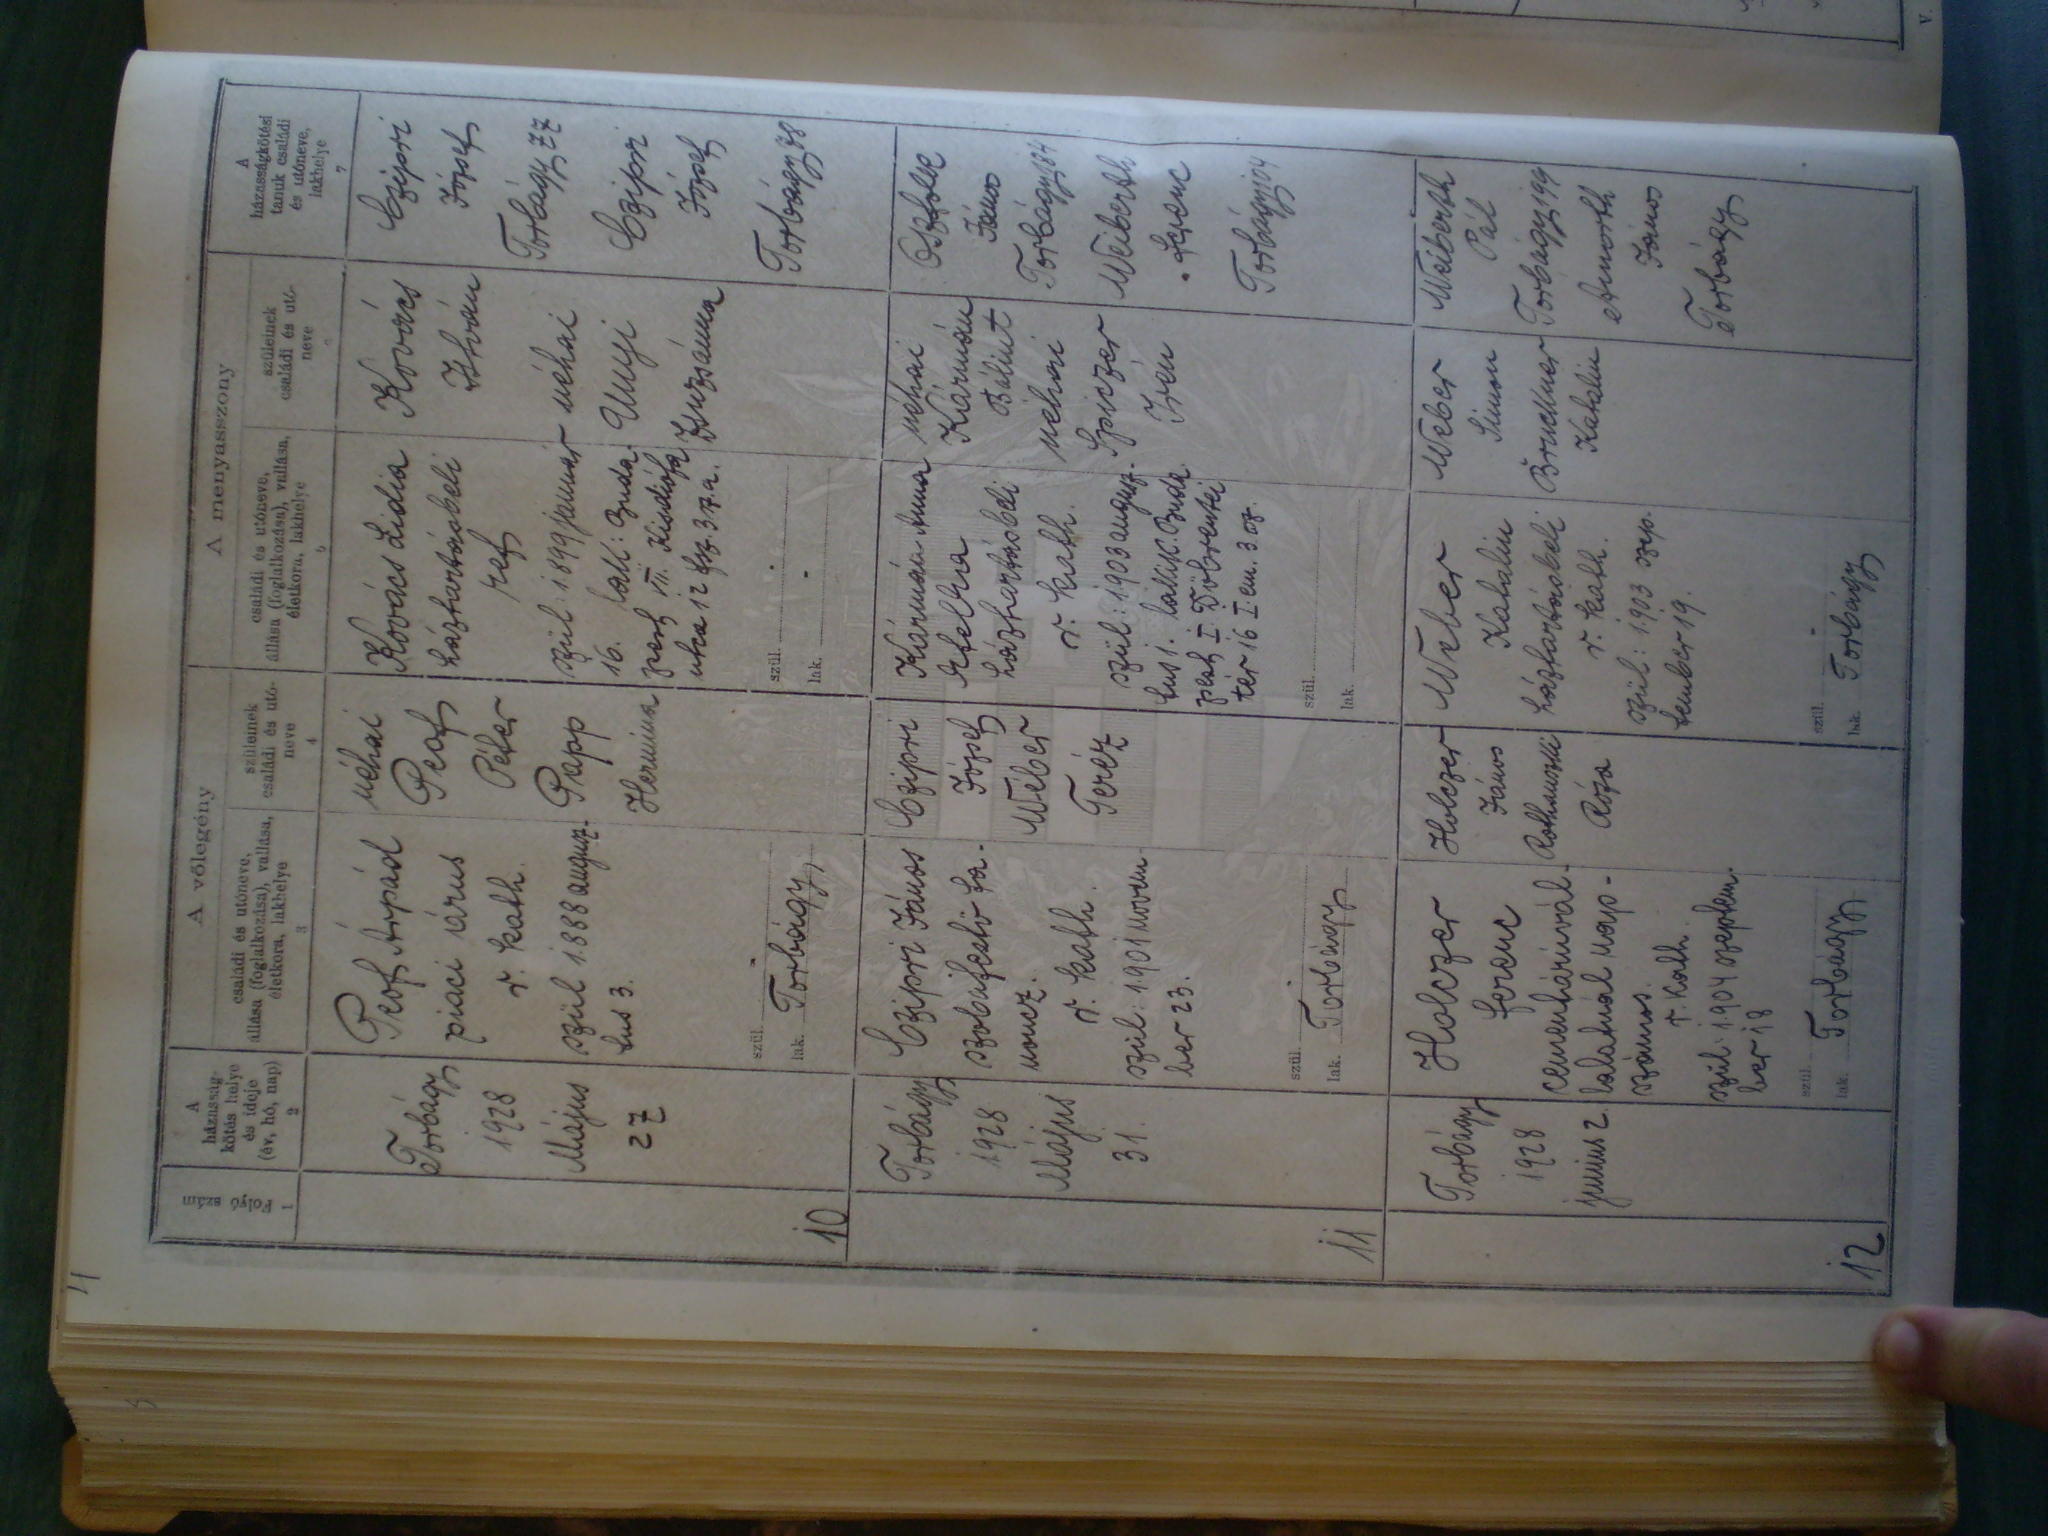 11
A vőlegény
A menyasszony
Folyó szám
1
A
házasság-
kötés helye
és ideje
(év, hó, nap)
2
családi és utóneve,
állása (foglalkozása), vallása,
életkora, lakhelye
3
szüleinek
családi és utó-
neve
4
családi és utóneve,
állása (foglalkozása), vallása,
életkora, lakhelye
5
szüleinek
családi és utó-
neve
A
házasságkötési
tanuk családi
és utóneve,
lakhelye
7
10
Torbágy
1928
Május
27
Árpád
piaci árus
r. kath.
szül 1888 augusz-
tus 3.
szül.
lak. Torbágy
néhai
Péter
Papp
Hermina
Kovács Lidia
háztartásbeli
ref
szül: 1899 január
16. lak: Buda-
pest VII. Kisdiófa
utca 12 fsz. 3. sz. a.
szül.
lak.
Kovács
István
néhai
Zsuzsánna
Czipri
József
Torbágy 77
Czipri
József
Torbágy 78
11
Torbágy
1928
Május
31.
Czipri János
szobafestő ta-
noncz.
r. kath.
szül: 1901 novem-
ber 23.
szül.
lak. Torbágy
Czipri
József
Wéber
Teréz
Kármán Anna
Etelka
háztartásbeli
r. kath.
szül: 1903 augusz-
tus 1. lakik: Buda-
pest I. Döbrentei
tér 16 I. em. 3. sz.
szül.
lak.
néhai
Kármán
Bálint
néhai
Spiczer
Irén
János
Torbágy 184
Weiberth
Ferenc
Torbágy 104
12
Torbágy
1928
junius 2.
Holczer
Ferenc
cementárúvál-
lalatnál nap-
számos.
r. kath.
szül: 1904 szeptem-
ber 18
szül.
lak. Torbágy
Holczer
János
Róza
Wéber
Katalin
háztartásbeli
r. kath.
szül: 1903 szep-
tember 19.
szül.
lak. Torbágy
Wéber
Simon
Bruckner
Katalin
Weiberth
Pál
Torbágy 199
János
Torbágy
V.